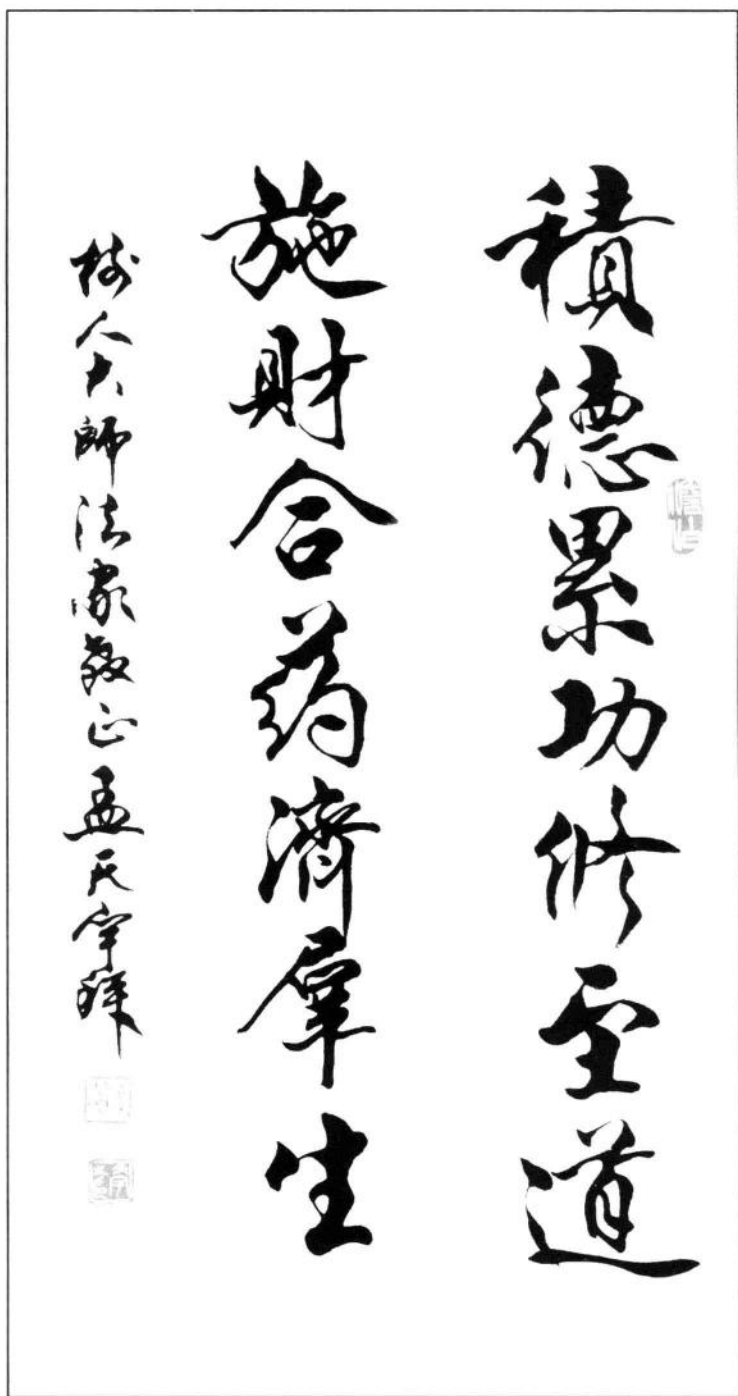 積德累功修至道
施財合药濟羣生
樹人大師法家教正孟天宇拜